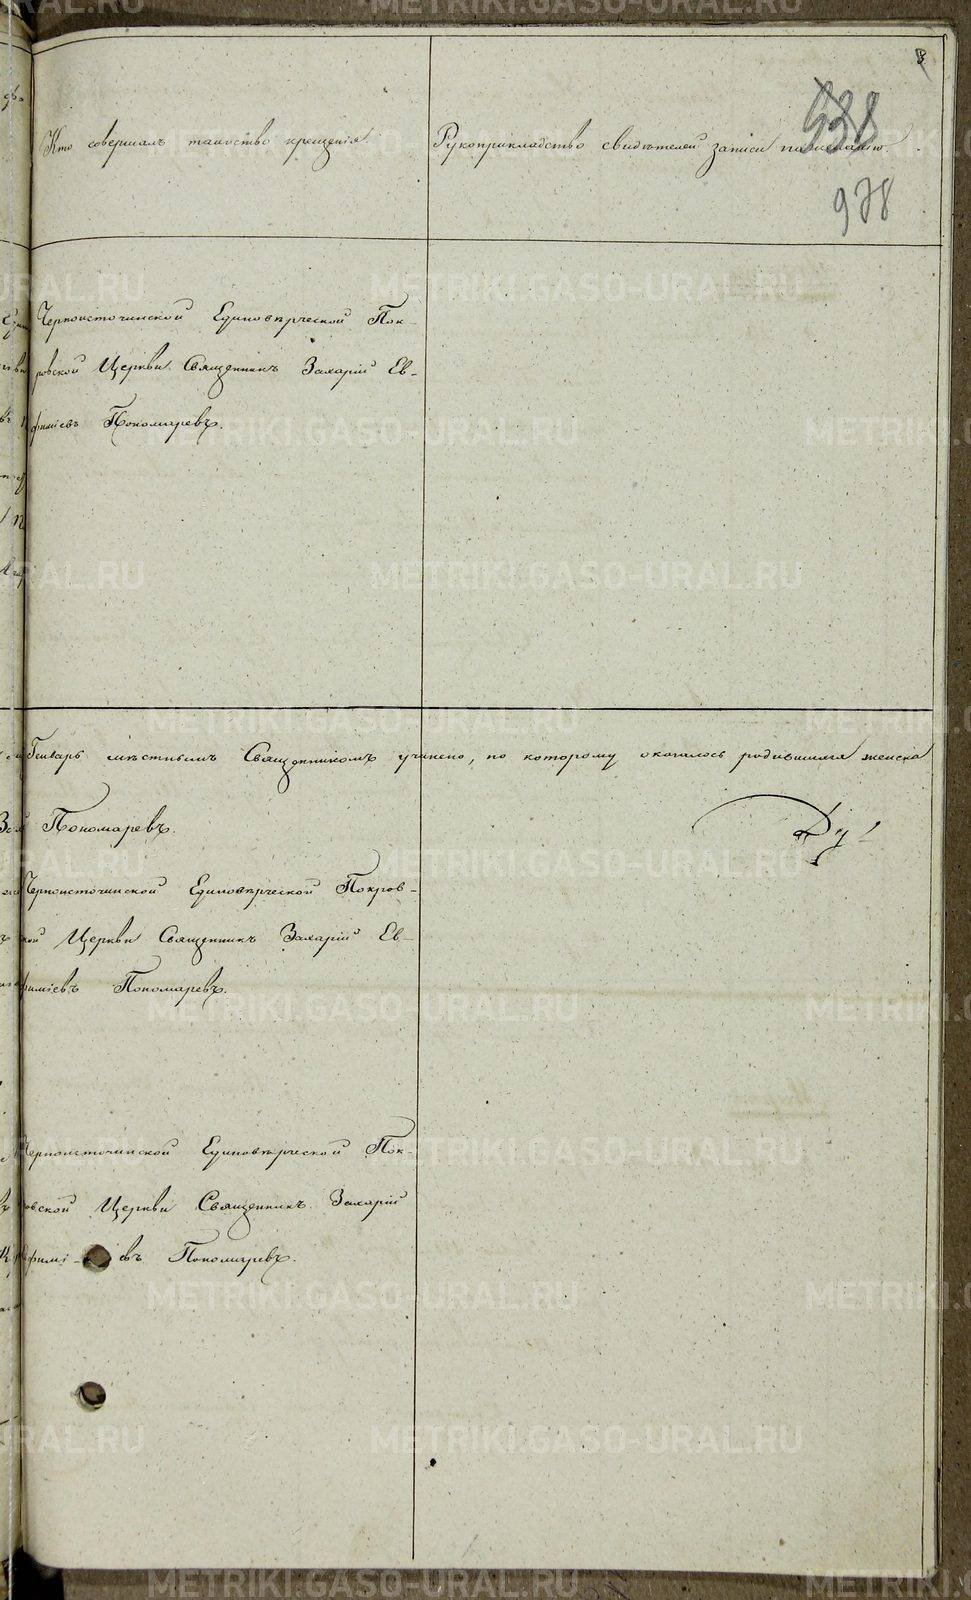 8
538
Кто совершалъ таинство крещенія.
Рукоприкладство свидѣтелей записи по желанію.
978
Черноисточинской Единовѣрческой Пок-
ровской Церкви Священникъ Захарій Ев-
фиміевъ Пономаревъ.
Генварь мѣстнымъ Священникомъ учинено, по которому оказалось родившихся женска
Пономаревъ.
Черноисточинской Единовѣрческой Покров-
ской Церкви Священникъ Захарій Ев-
фиміевъ Пономаревъ.
Черноисточинской Единовѣрческой Пок-
ровской Церкви Священникъ Захарій
Евфимі-евъ Пономаревъ.
METRIKI.GASO-URAL.RU